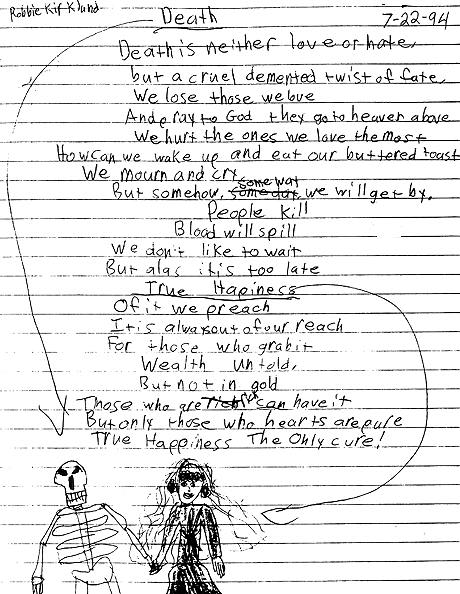 Robbie Kif Klund
Death
7-22-94
Death is neither love or hate,
but a cruel demented twist of fate,
We lose those we love
And pray to God they go to heaven above
We hurt the ones we love the most
How Can we wake up and eat our buttered toast
We mourn and cry,
But somehow, some way we will get by.
People Kill
Blood will spill
We don't like to wait
But alas it is too late
True Hapiness
Of it we preach
It is always out of our reach
For those who grab it
Wealth untold,
But not in gold
Those who are rich can have it
But only those who hearts are pure
True Happiness The Only cure!